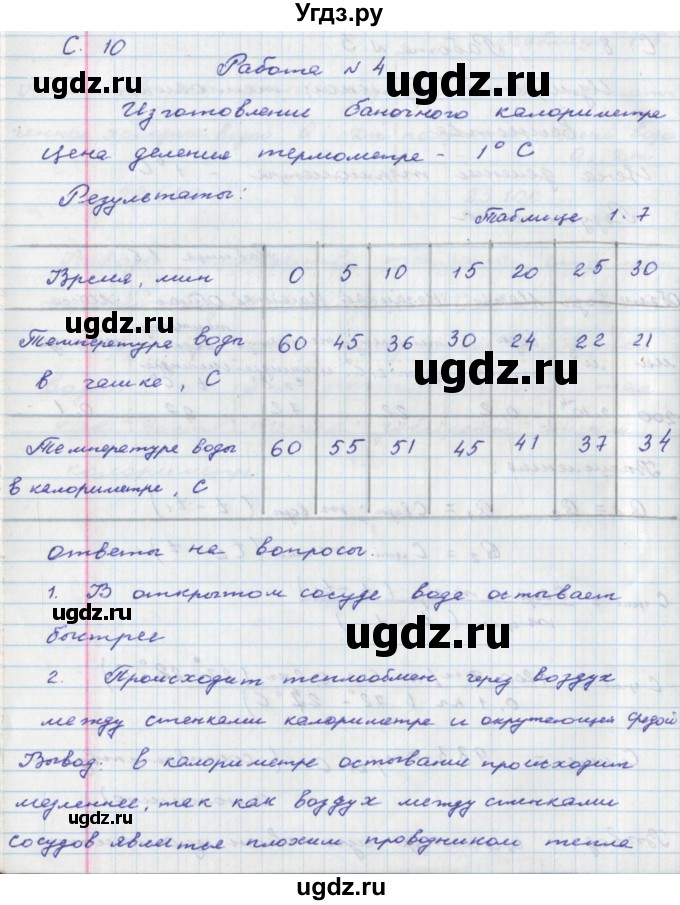 Угдз.ру
С. 10
Работа № 4
Изготовление баночного калориметра
Цена деления термометра - 1° С
Результаты:
Таблица 1.7
Время, мин 0 5 10 15 20 25 30
Температура воды в чашке, С 60 45 36 30 24 22 21
Температура воды в калориметре, С 60 55 51 45 41 37 34
ответы на вопросы.
1. В открытом сосуде вода остывает
быстрее
2. Происходит теплообмен через воздух
между стенками калориметра и окружающей средой
Вывод: в калориметре остывание происходит
медленнее, так как воздух между стенками
сосудов является плохим проводником тепла
ugdz.ru
ugdz.ru
ugdz.ru
ugdz.ru
ugdz.ru
ugdz.ru
ugdz.ru
ugdz.ru
ugdz.ru